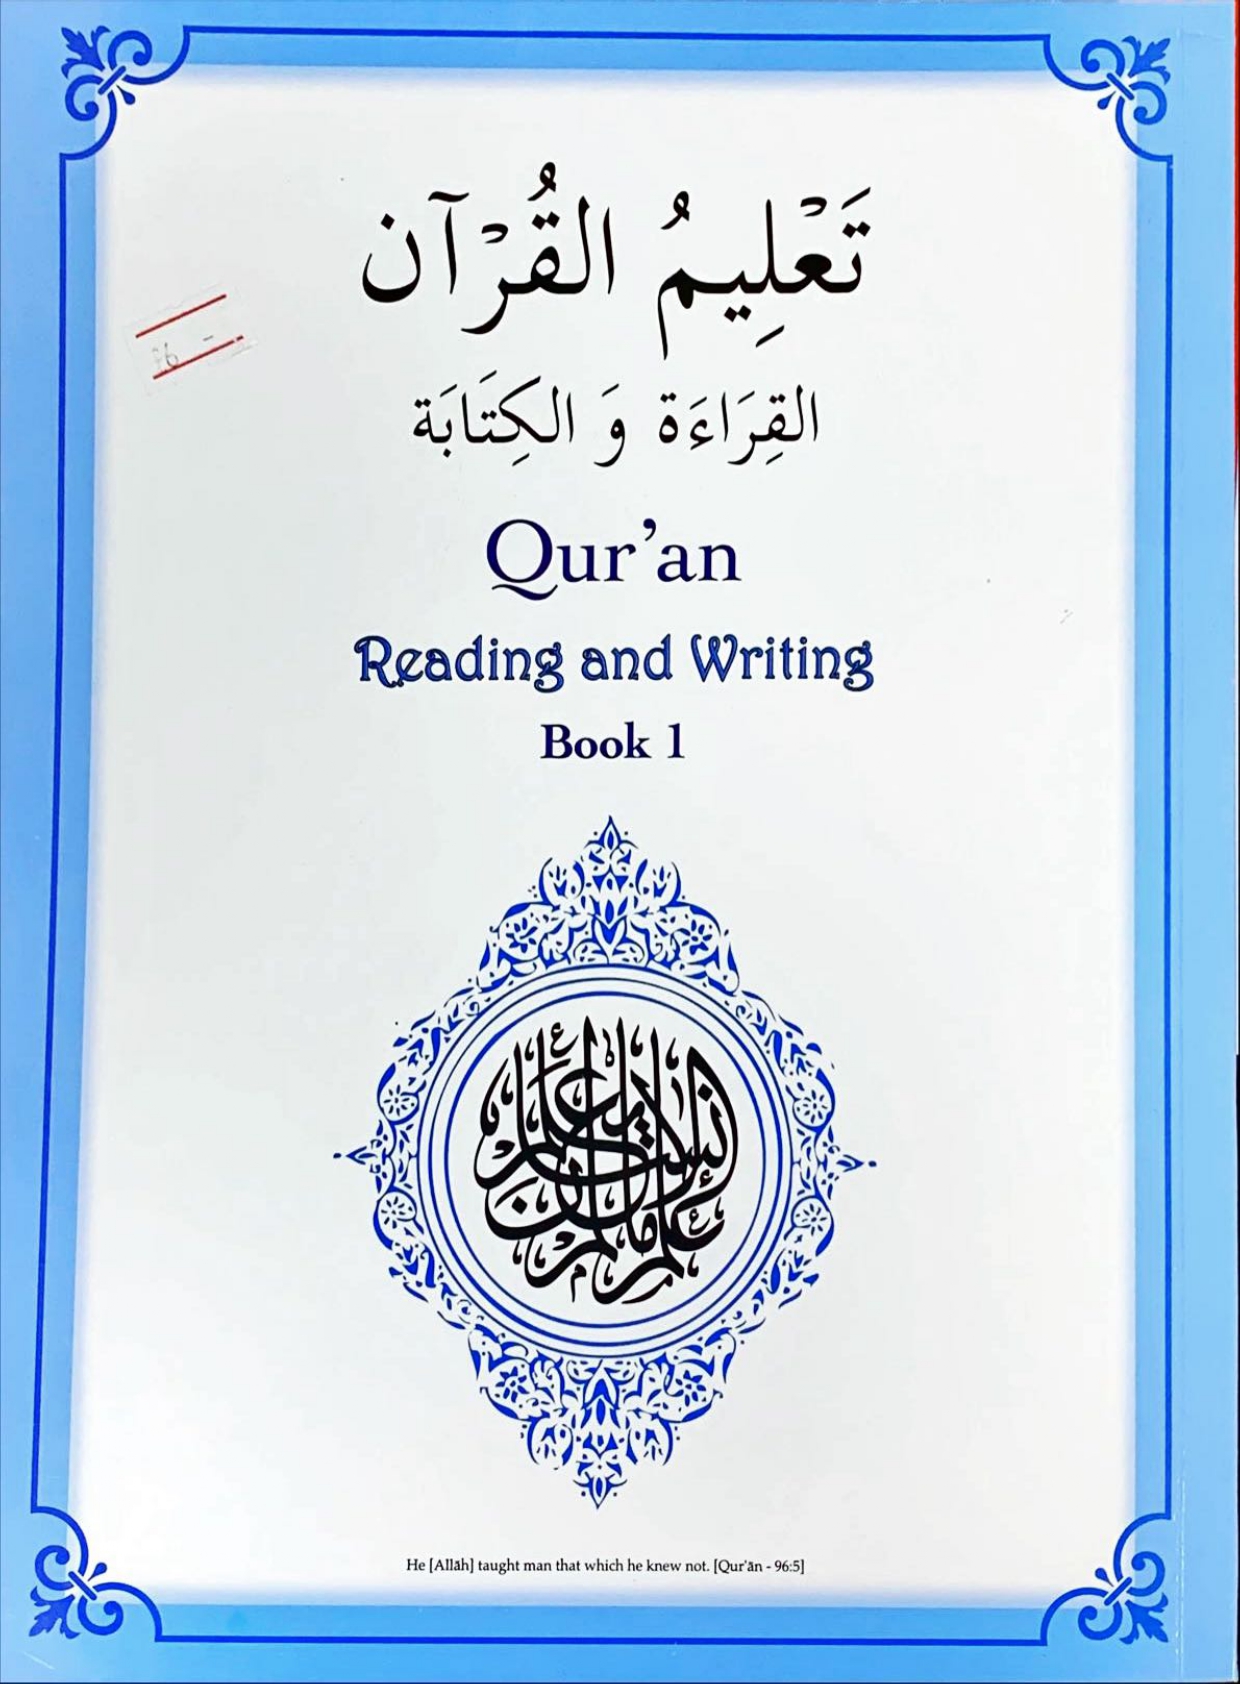 تَعْلِيمُ الْقُرْآن
القِرَاءَة وَ الكِتَابَة
Qur’an
Reading and Writing
Book 1
علم الإنسان ما لم يعلم
He [Allāh] taught man that which he knew not. [Qur’ān - 96:5]